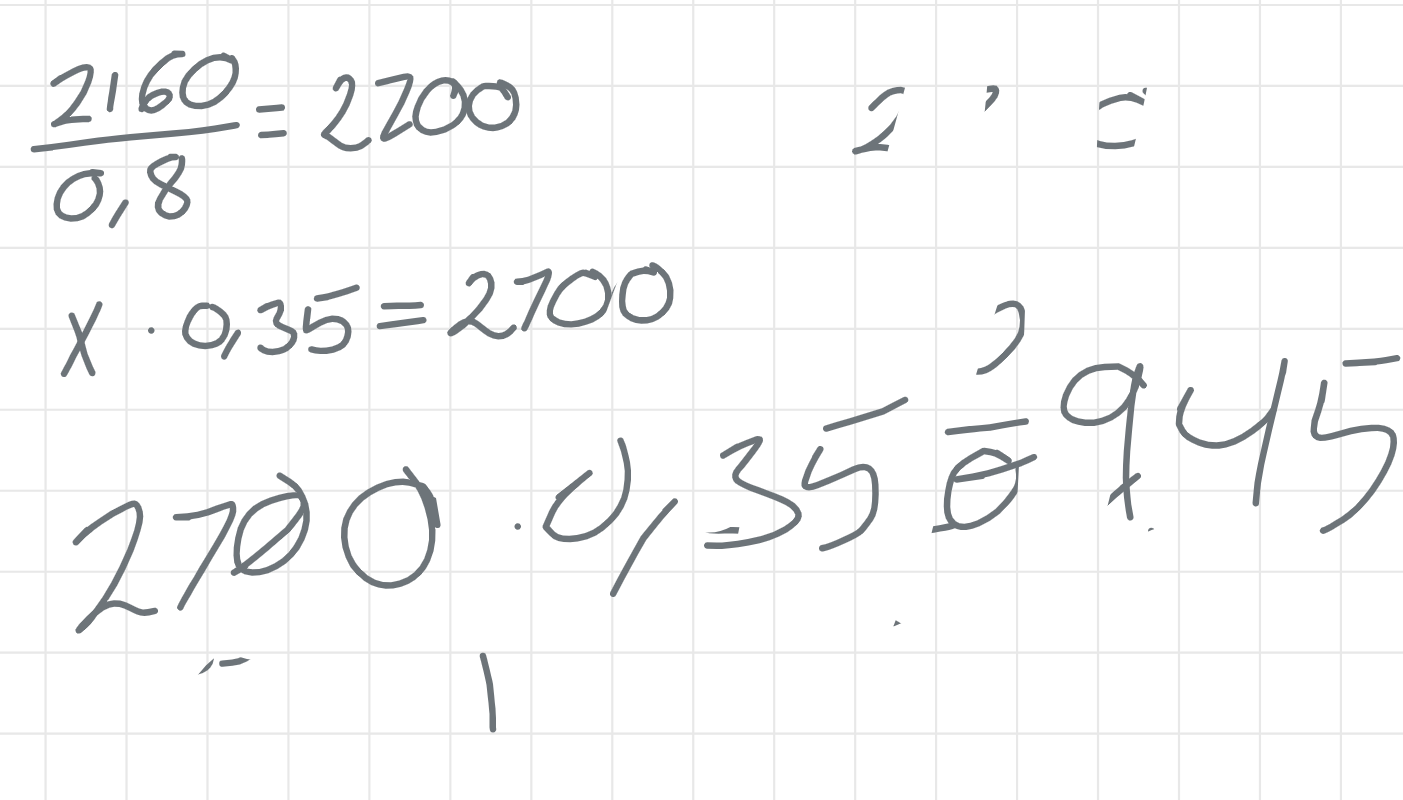 2160/0,8 = 2700
x · 0,35 = 2700
2700 · 0,35 = 945